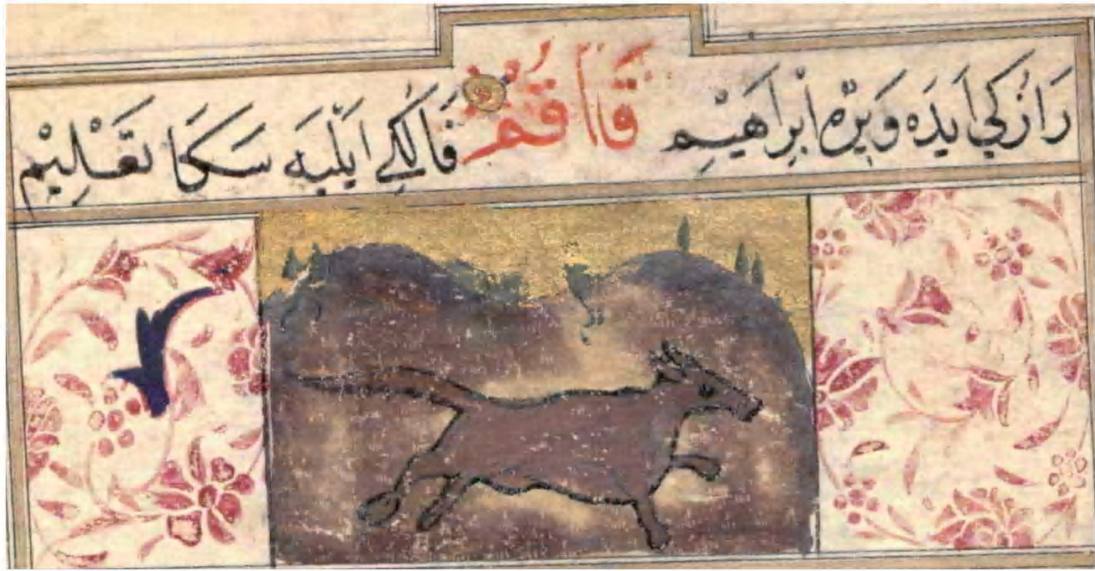 رَازُكِي اَيدَه وَيرَه اِبْرَاهِيم قَااقُمْ فَالُكِي اَيْلَيَه سَكَا تَعْلِيْم